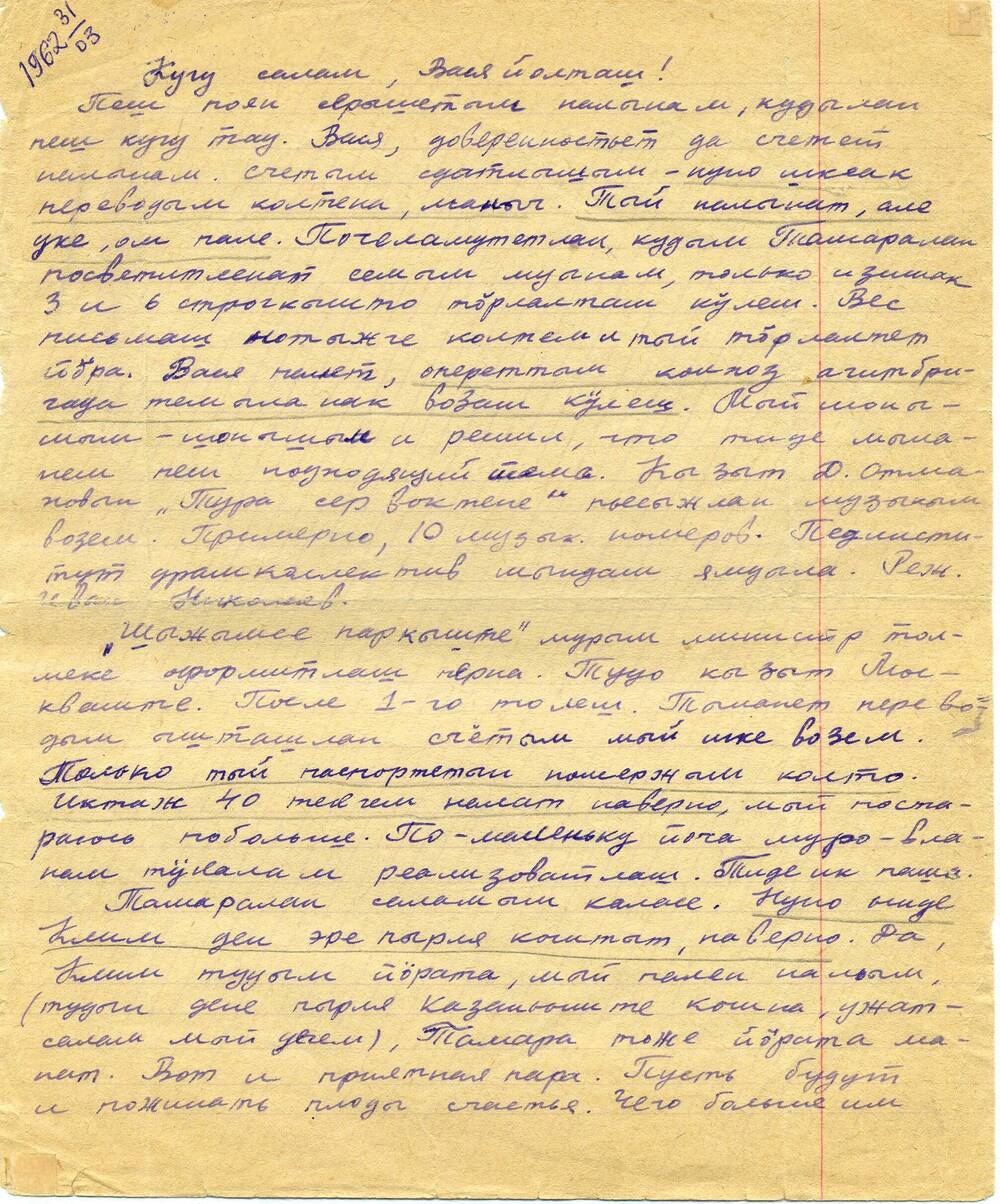 1962 31/03
Кугу салам, Вася йолташ!
Пеш поян серышетым нальынам, кудылан
пеш кугу тау. Вася, доверенностьет да счетет
нальынам. Счетым сдатлышым - нуно шкеак
переводым колтена, маныч. Тый нальынат, але
уке, ом пале. Почеламутетлан, кудым Тамаралан
посветитленат семым муынам, только изишак
3 и 6 строчкышто тӧрлаташ кӱлеш. Вес
письмаш нотыжге колтем и тый тӧрлатет
йӧра. Вася палет, опереттым колхоз агитбри-
гада темыланак возаш кӱлеш. Мый шоны-
шым - шонышым и решил, что тиде мыла-
нем пеш подходящий тема. Кызыт Д. Отма-
ховын „Тура сер воктене" пьесыжлан музыкым
возем. Примерно, 10 музык. номеров. Пединсти-
тут драмколлектив шындаш ямдыла. Реж.
Иван Николаев.
„Шыжымсе паркыште" мурым министр тол-
меке оформитлаш пёрна. Тудо кызыт Мос-
кваште. После 1-го толеш. Тыланет перево-
дым ышташлан счётым мый шке возем.
Только тый паспортетын номержым колто.
Иктаж 40 теҥгем налат наверно, мый поста-
раюсь побольше. По-маленьку йоча муро-вла-
кам тӱҥалам реализоватлаш. Тиде ик паша.
Тамаралан саламым каласе. Нуно ынде
Клим ден эре пырля коштыт, наверно. Да,
Клим тудым йӧрата, мый пален нальым,
(тудын дене пырля Казаньыште кошна, ужат-
салам мый дӱем), Тамара тоже йӧрата ма-
нат. Вот и приятная пара. Пусть будут
и пожинать плоды счастья. Чего больше им